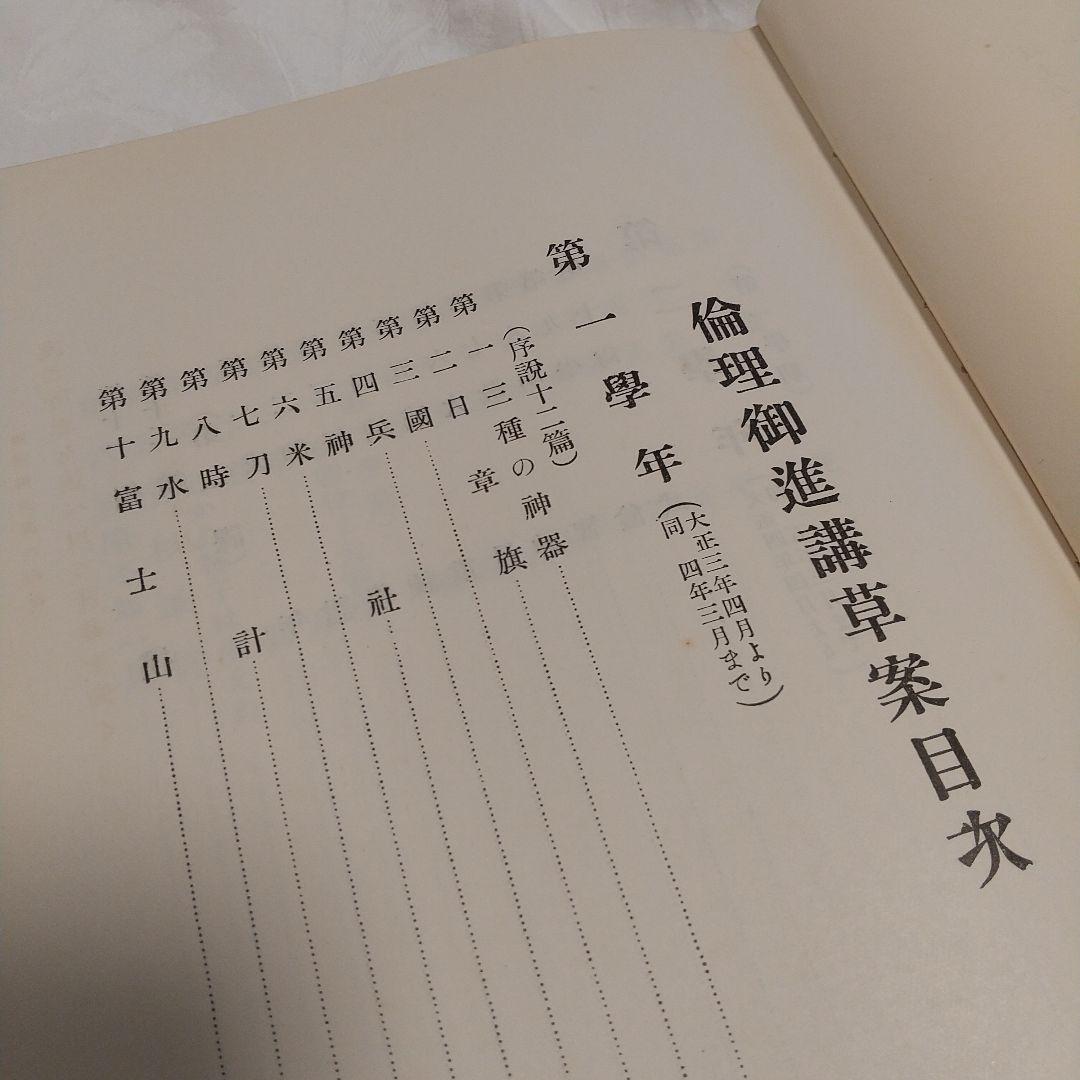 倫理御進講草案目次
第一學年(大正三年四月より
同四年三月まで)
(序說十二篇)
第一 三種の神器
第二 日章旗
第三 國
第四 兵
第五 神社
第六 米
第七 刀
第八 時計
第九 水
第十 富士山